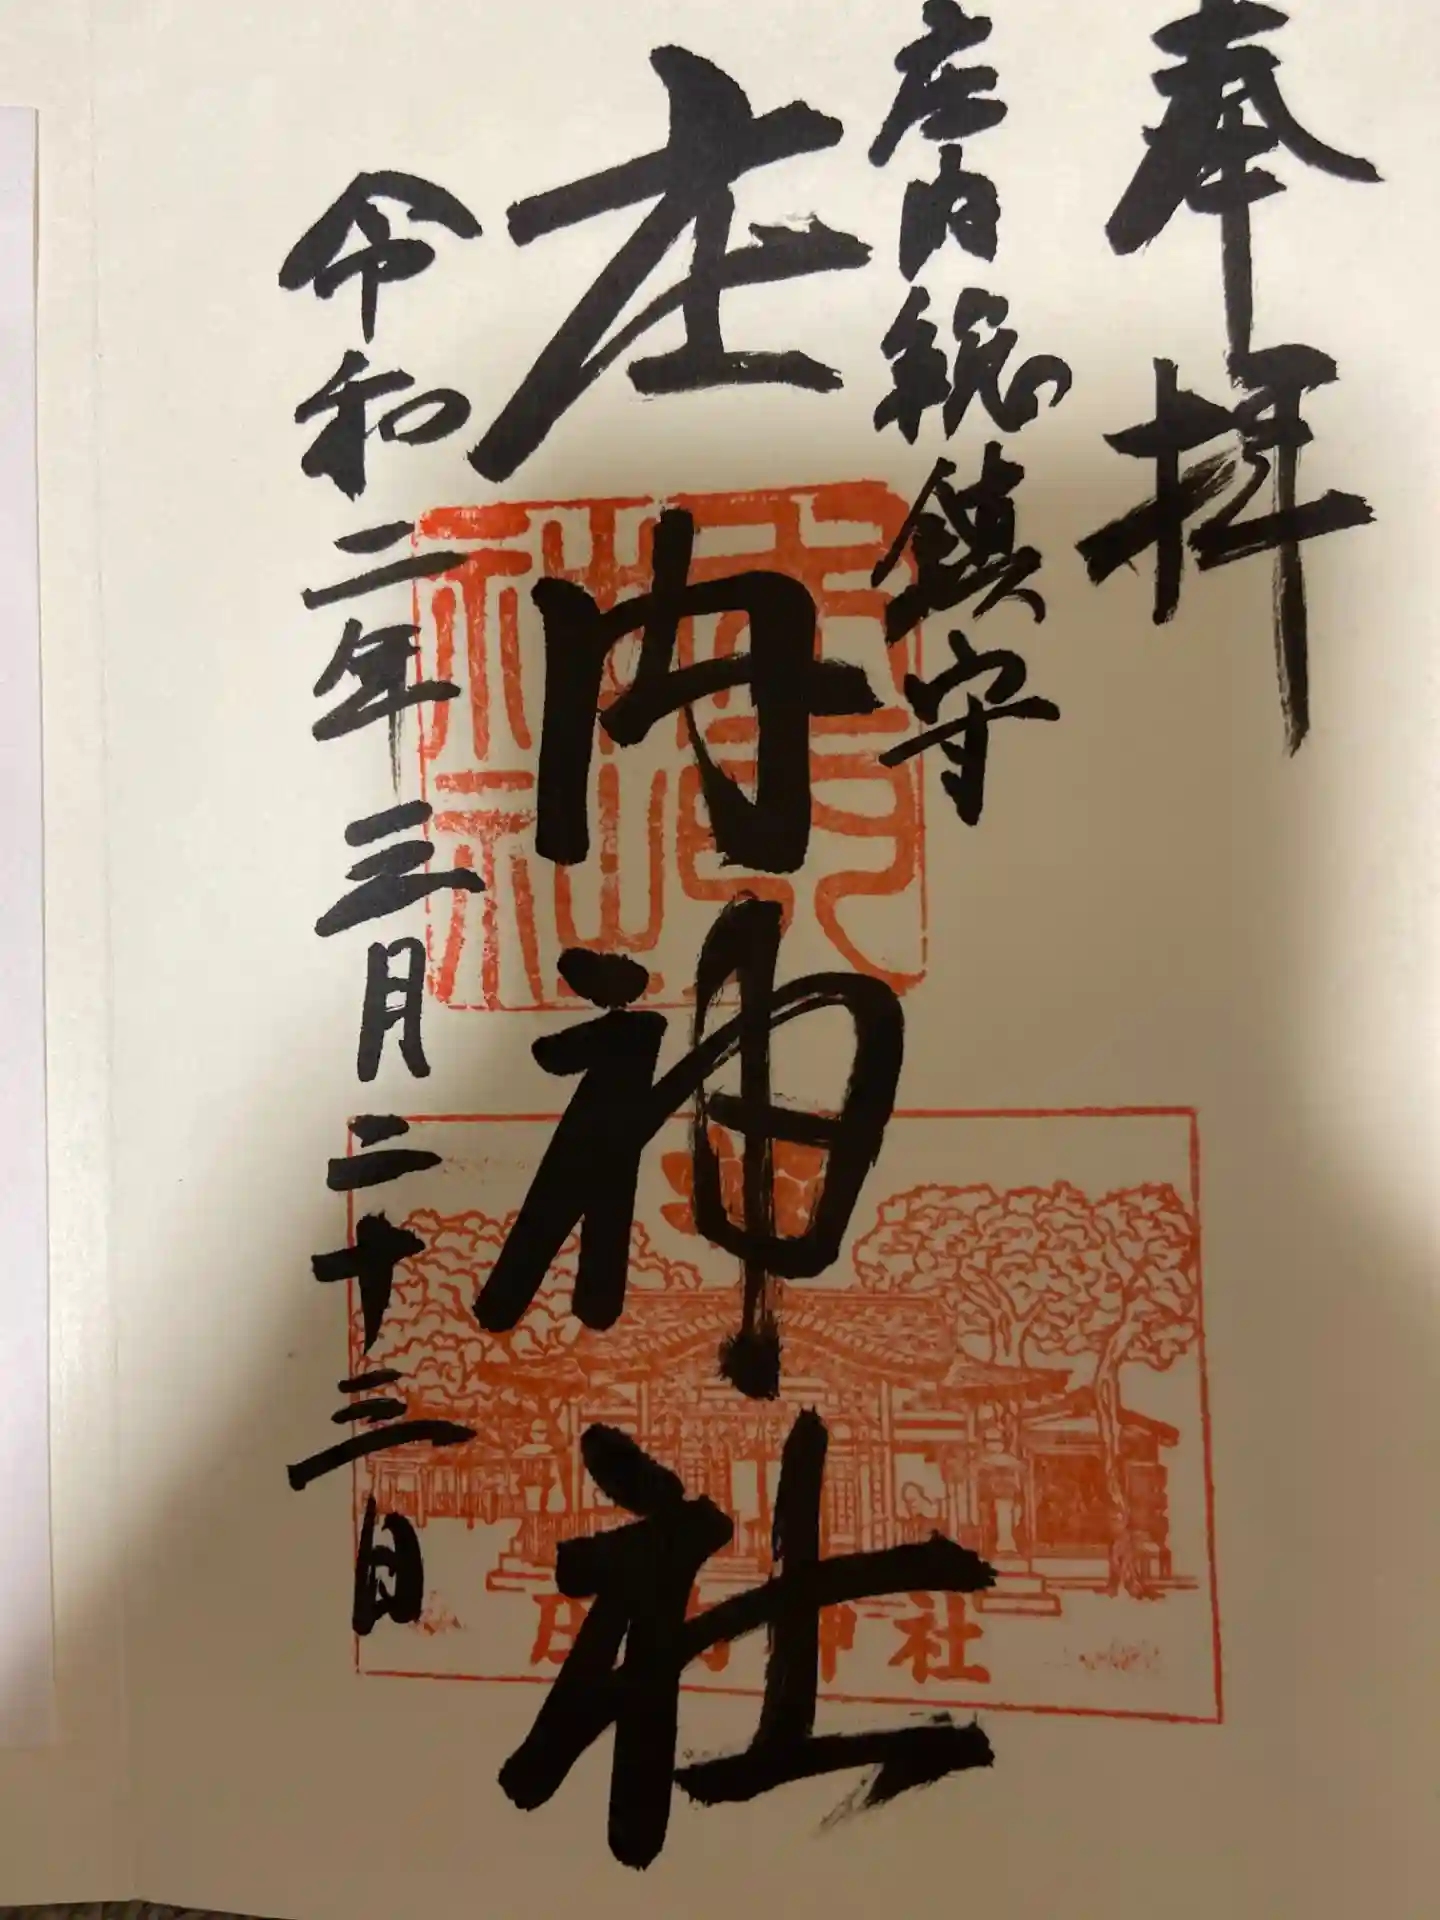 奉拝
庄内総鎮守
庄内神社
令和二年三月二十三日
庄内神社